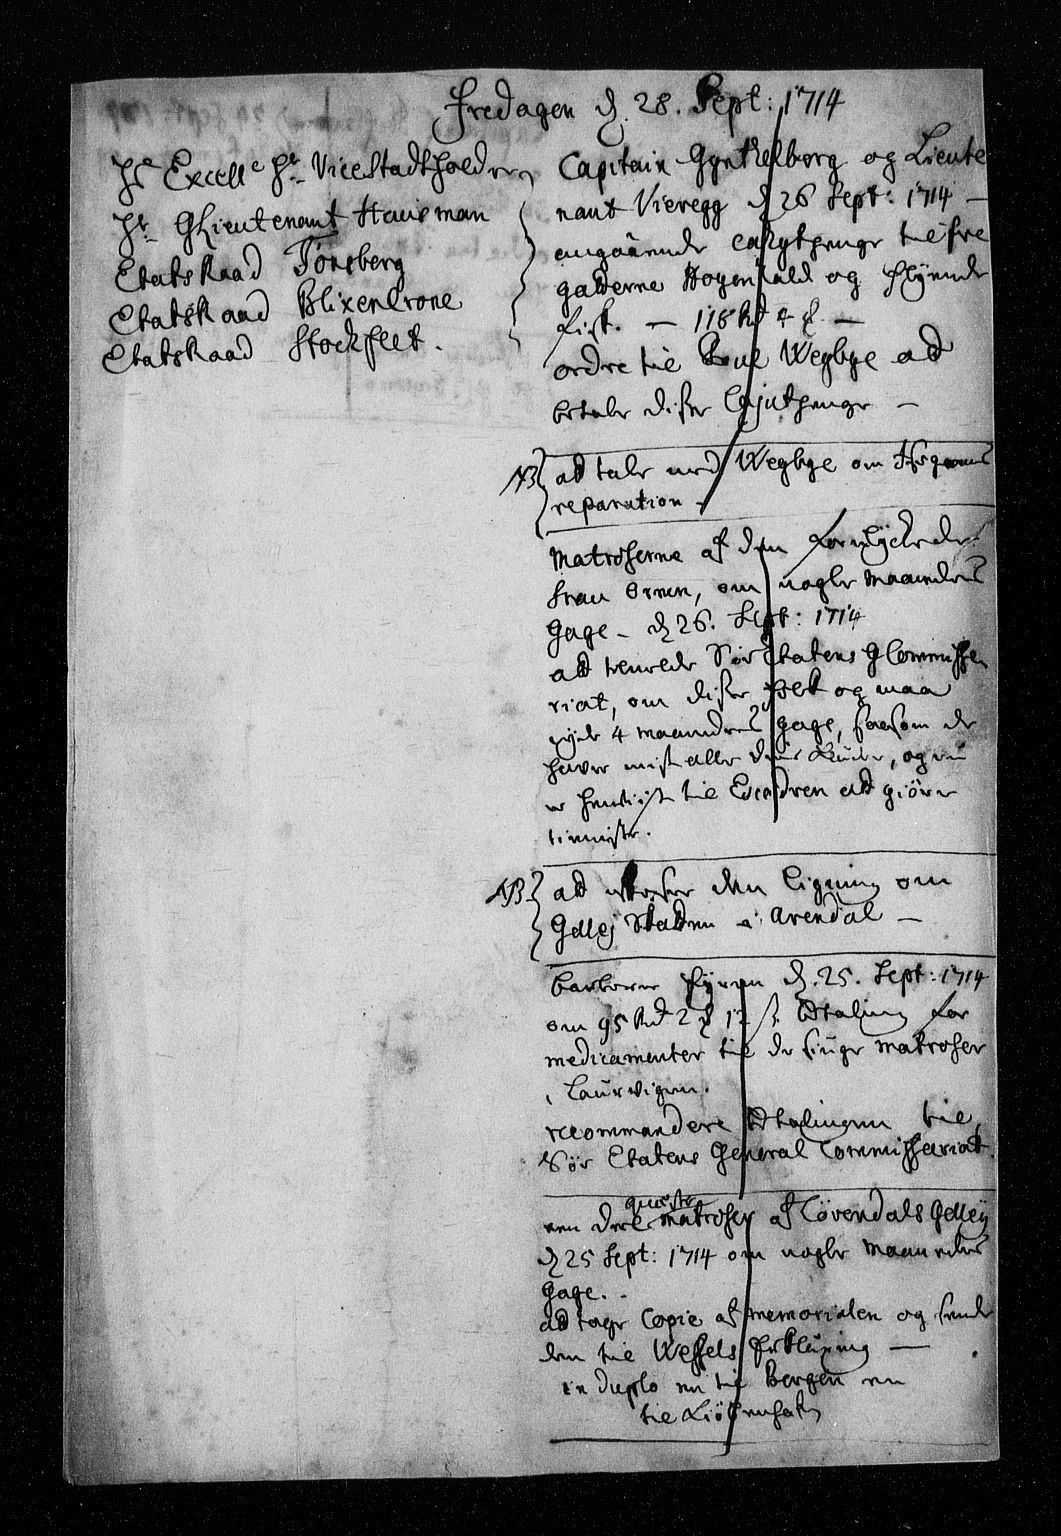 Fredagen d. 28. Sept: 1714
Hs Excell. Hr. Vice Stadtholdren
Hr. GLieutenant Hausman
Etatsraad Tønsberg
Etatskaad Blixencrone
Etatskaad Stockflet.
Capitain Gynthelborg og Lieute
nant Vieregg d. 26 Sept: 1714 –
angaaende cahytpenge til fre
gatterne Høyenhald og flyende
fisk. – 118 Rd 4 ß –
ordre til Poul Wegbye ad
betale diser Cajutpenge –
NB ad tale med Wegbye om
reparation –
Matroserne af den
fran Ornen, om nogle maaneders
gage – d. 26. Sept: 1714
ad Siør Etatens GCommissa
riat, om diser folk og maa
nyde 4 maaneders gage, saasom de
haver mist alle deris Kleder, og nu
er til Escadren ad giøre
tienniste.
NB. ad den ligning om
Galley Stadden i Arendal –
barberer d. 25. Sept: 1714
om 95 Rd 2 12 ß betaling for
medicamenter til de siuge matroser
i Laurvigen.
recommandere betalingen til
Siør Etatens General Commissariat.
matroser af Løvendals Galley
d 25 Sept: 1714 om nogle maaneders
gage. –
ad tage Copie af memorialen og sende
den til Wessels Erklæring —
in duplo en til Bergen en
til Kiøbenhafn